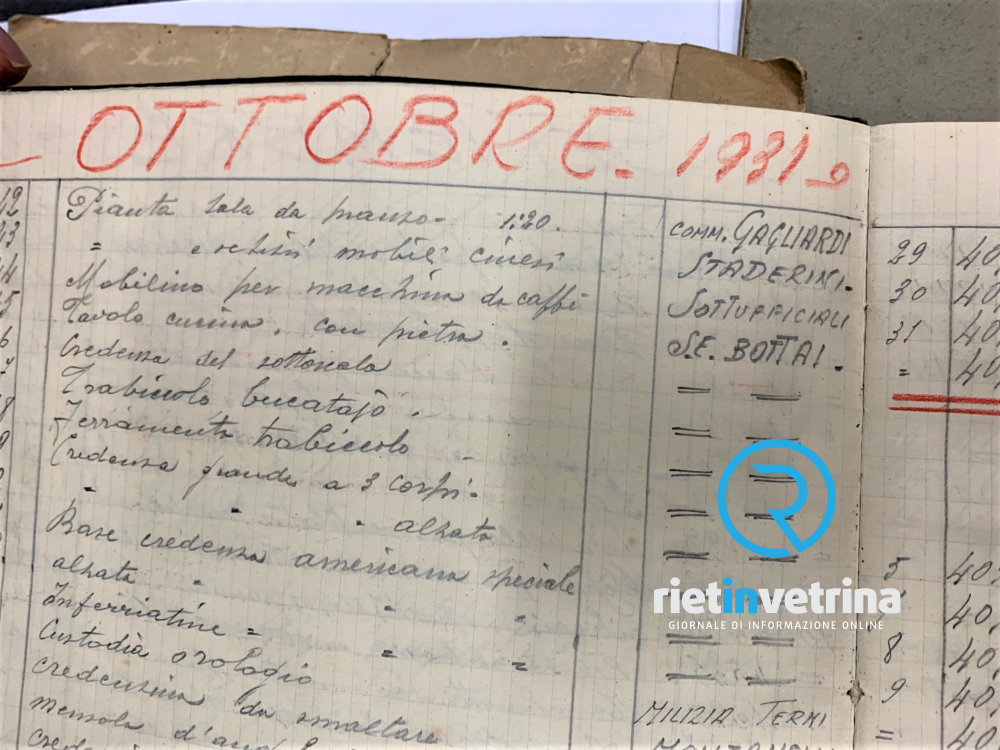 OTTOBRE. 1931
12 Pianta sala da pranzo - 1:20. COMM. GAGLIARDI 29 40
13 " e schizzi mobili cinesi STADERINI. 30 40
14 Mobilino per macchina da caffè SOTTUFFICIALI 31 40
15 Tavolo cucina, con pietra. S.E. BOTTAI. " 40
6 Credenza del sottoscala = =
7 Trabiccolo bucatajo. = =
8 Ferramenta trabiccolo = =
9 Credenza grande a 3 corpi. = =
" " " alzata = =
Base credenza americana speciale 5 40
alzata " " " 40
Inferriatine = " " = = 8 40
Custodia orologio = = 9 40
credenzina da smaltare MILIZIA TERMI = 40
mensola d'
rietinvetrina
GIORNALE DI INFORMAZIONE ONLINE